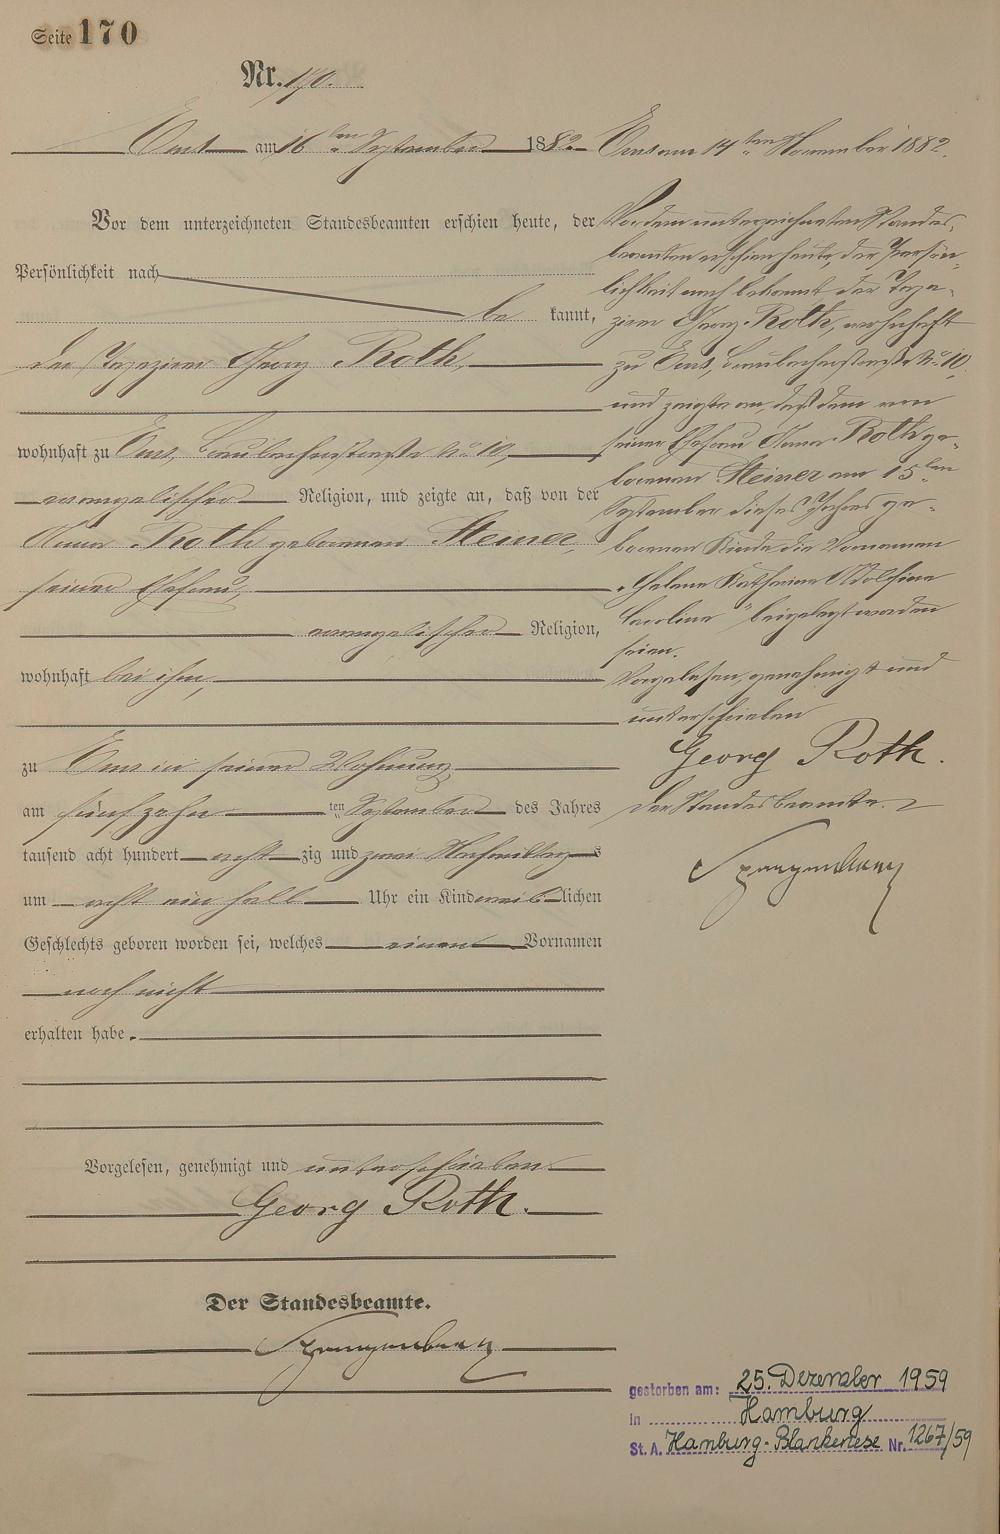 Seite 170
Nr. 170.
Ems am 16ten September 1882
Vor dem unterzeichneten Standesbeamten erschien heute, der
Persönlichkeit nach
be kannt,
der Tapezirer Georg Roth,
wohnhaft zu Ems, No 10,
evangelischer Religion, und zeigte an, daß von der
Anna Roth geborenen Steiner,
seiner Ehefrau
evangelischer Religion,
wohnhaft bei ihm,
zu Ems in seiner Wohnung
am fünfzehn ten September des Jahres
tausend acht hundert acht zig und zwei Nachmittags
um acht ein halb Uhr ein Kind weib lichen
Geschlechts geboren worden sei, welches einen Vornamen
noch nicht
erhalten habe.
Vorgelesen, genehmigt und unterschrieben
Georg Roth.
Der Standesbeamte.
Spangenberg
Ems am 14ten November 1882.
Vor dem unterzeichneten Standes-
beamten erschien heute, der Persön-
lichkeit nach bekannt der Tape-
zirer Georg Roth, wohnhaft
zu Ems, No 10,
und zeigte an, daß dem von
seiner Ehefrau Anna Roth ge-
borenen Steiner am 15ten
September dieses Jahres ge-
borenen Kinde die Vornamen
„Helene Katharine Adolfine
Caroline“ beigelegt worden
seien.
Vorgelesen, genehmigt und
unterschrieben
Georg Roth.
Der Standesbeamte.
Spangenberg
gestorben am: 25. Dezember 1959
in Hamburg
St. A. Hamburg-Blankenese Nr. 1267/59